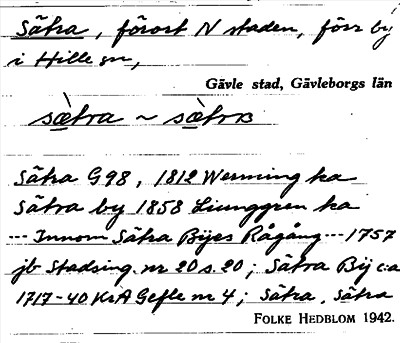 Sätra, förort N staden, förr by
i Hille sn,
Gävle stad, Gävleborgs län
sæ̀tra ~ sæ̀trв
Sätra G98, 1812 Werming ka
Sätra by 1858 Ljunggren ka
--- Innom Sätra Bijes Rågång --- 1757
jb Stadsing. nr 20 s. 20; Sätra Bij c:a
1717-40 KrA Gefle nr 4; Sätra, Sätra
FOLKE HEDBLOM 1942.